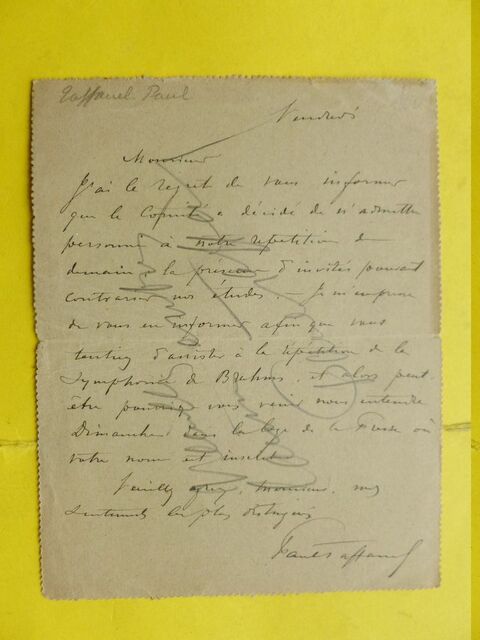 Taffanel Paul
Vendredi
Monsieur
J'ai le regret de vous informer
que le Comité a décidé de n'admettre
personne à notre répétition de
demain, la présence d'invités pouvant
contrarier nos études. - Je m'empresse
de vous en informer afin que vous
d'assister à la répétition de la
Symphonie de Brahms, et alors peut-
être pourrez vous venir nous entendre
Dimanche dans la loge de la Presse où
votre nom est inscrit.
Veuillez agréer, Monsieur, mes
sentiments les plus distingués
Paul Taffanel